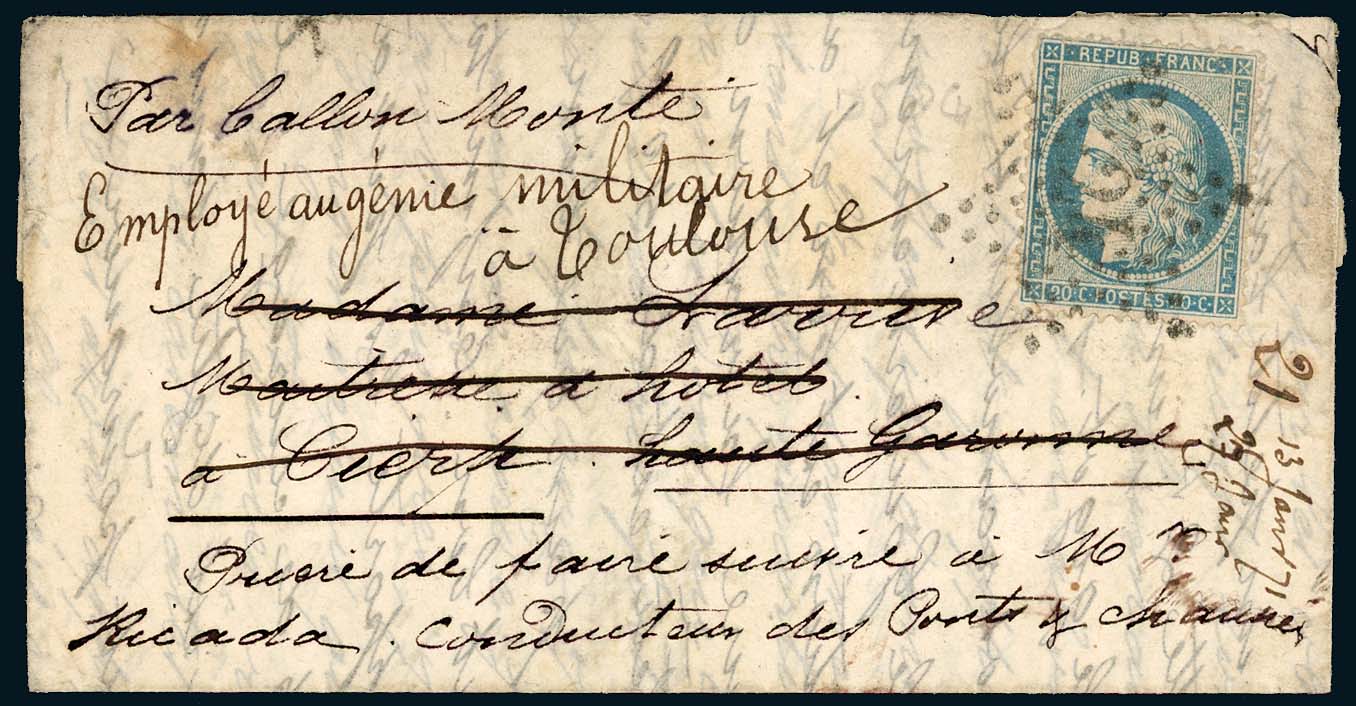 Par Ballon Monté
Employé au génie militaire
à Toulouse
Madame
Maitresse d hotel
à Cierp. haute Garonne
Prière de faire suivre à Mr
Ricada. Conducteur des Ponts & chaussées
REPUB. FRANC.
20.C. POSTES 20.C.
21
13 Janv 71